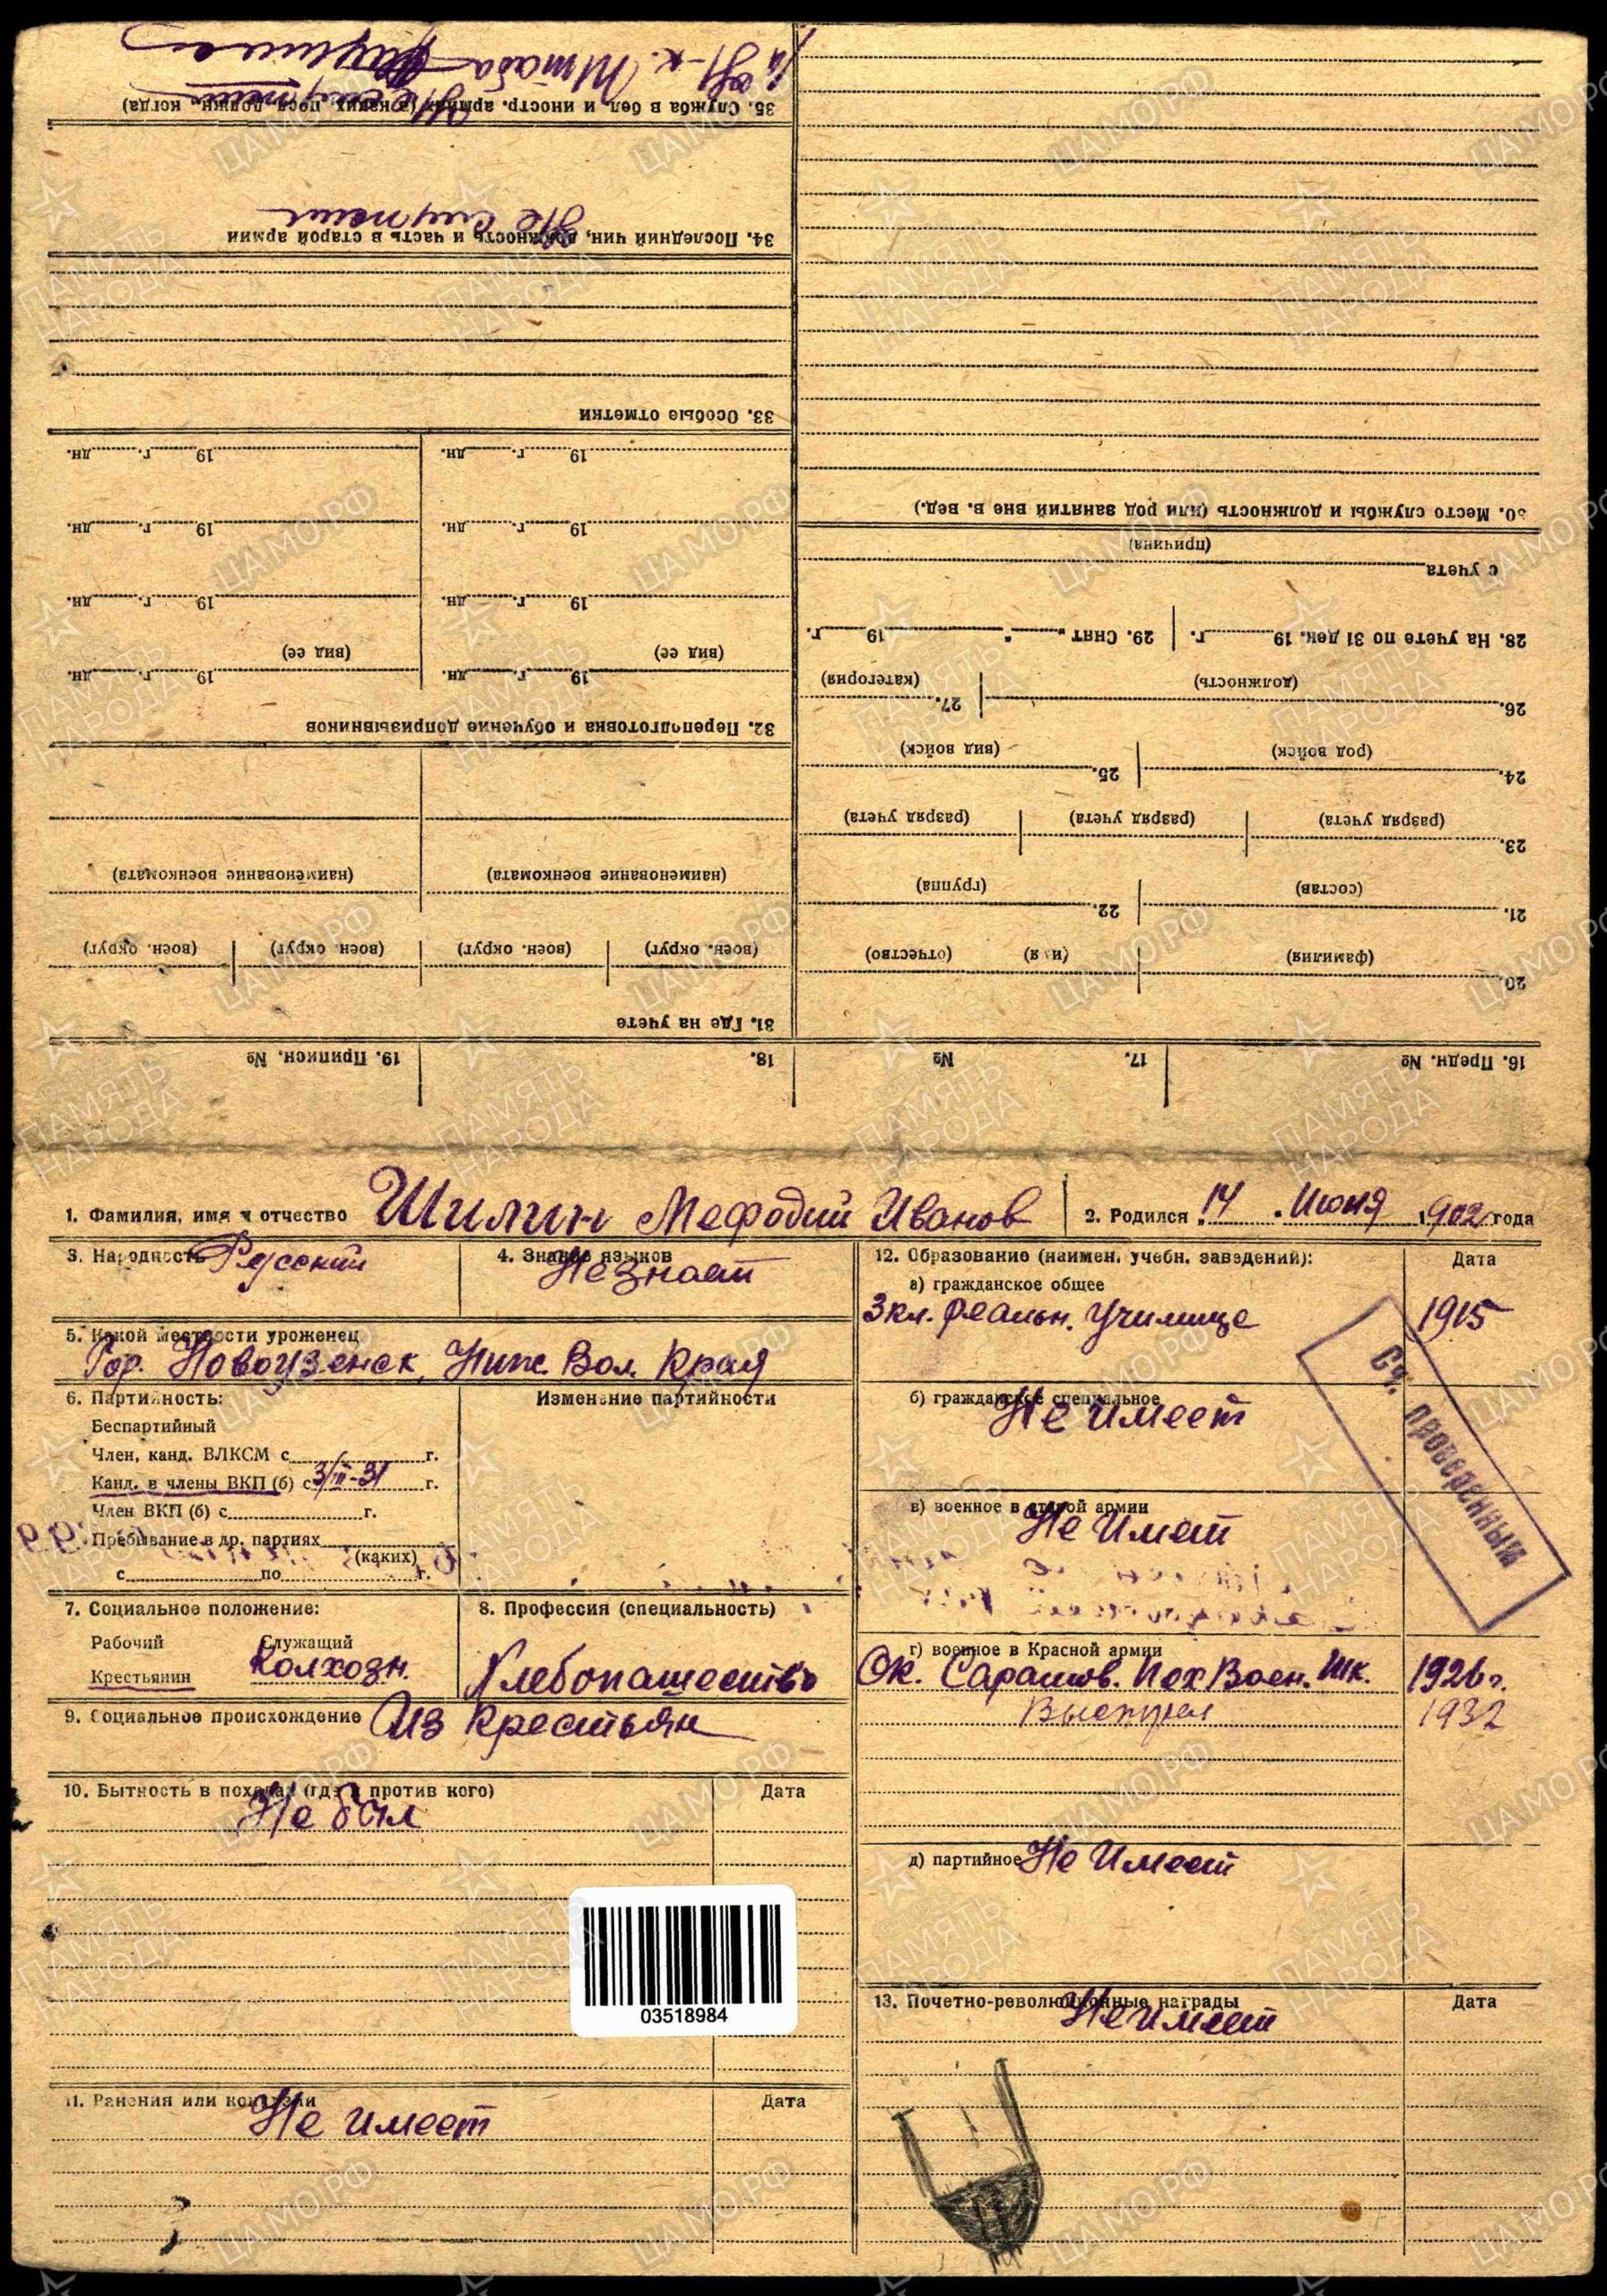 1. Фамилия, имя и отчество Шилин Мефодий Иванов
2. Родился 14 Июня 1902 года
3. Народность Русский
4. Знание языков Не знает
5. Какой местности уроженец
Гор. Новоузенск, Ниж. Вол. Края
6. Партийность:
Изменение партийности
Беспартийный
Член, канд. ВЛКСМ с г.
Канд. в члены ВКП (б) с 3/III-31 г.
Член ВКП (б) с г.
Пребывание в др. партиях
(каких)
с по г.
7. Социальное положение:
Рабочий Служащий
Крестьянин Колхозн.
8. Профессия (специальность)
Хлебопашество
9. Социальное происхождение Из крестьян
10. Бытность в походах (где и против кого) Дата
Не был
11. Ранения или контузии Дата
Не имеет
12. Образование (наимен. учебн. заведений): Дата
а) гражданское общее
3 кл. Реальн. Училище 1915
б) гражданское специальное
Не имеет
в) военное в старой армии
Не Имеет
г) военное в Красной армии
Ок. Саратов. Пех Воен. Шк. 1926 г.
Выстрел 1932
д) партийное Не Имеет
13. Почетно-революционные награды Дата
Не имеет
проверенный
03518984
16. Предн. №
17. №
18.
19. Приписн. №
20.
(фамилия) (отчество)
21. 22.
(состав) (группа)
23.
(разряд учета) (разряд учета) (разряд учета)
24. 25.
(род войск) (вид войск)
26. 27.
(должность) (категория)
28. На учете по 31 дек. 19 г. 29. Снят „ “ 19 г.
с учета
(причина)
30. Место службы и должность (или род занятий вне в. вед.)
31. Где на учете
(воен. округ) (воен. округ) (воен. округ) (воен. округ)
(наименование военкомата) (наименование военкомата)
32. Переподготовка и обучение допризывников
19 г. дн. 19 г. дн.
(вид ее) (вид ее)
19 г. дн. 19 г. дн.
19 г. дн. 19 г. дн.
19 г. дн. 19 г. дн.
33. Особые отметки
34. Последний чин, должность и часть в старой армии
Не служил
35. Служба в бел. и иностр. армиях (в каких, посл. должн., когда)
Не служил
Штаба
ПАМЯТЬ
НАРОДА
ЦАМО.РФ